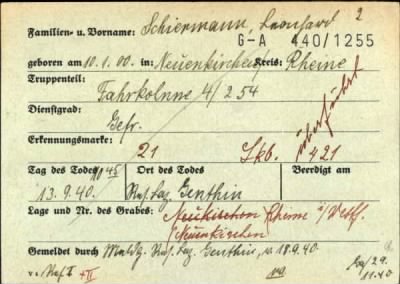 Familien- u. Vorname: Schiermann, Leonhard 2
G-A 440/1255
geboren am 10.1.00. in: Neuenkirchen Kreis: Rheine
Truppenteil:
Fahrkolnne 4/254
Dienstgrad:
Gefr. überführt
Erkennungsmarke:
21 Skb. 421
Tag des Todes Ort des Todes Beerdigt am
13.9.40. Res. Laz. Genthin
Lage und Nr. des Grabes: Neukirchen Rheine i/Westf.
Neuenkirchen
Gemeldet durch Res. Laz. Genthin, v. 18.9.40.